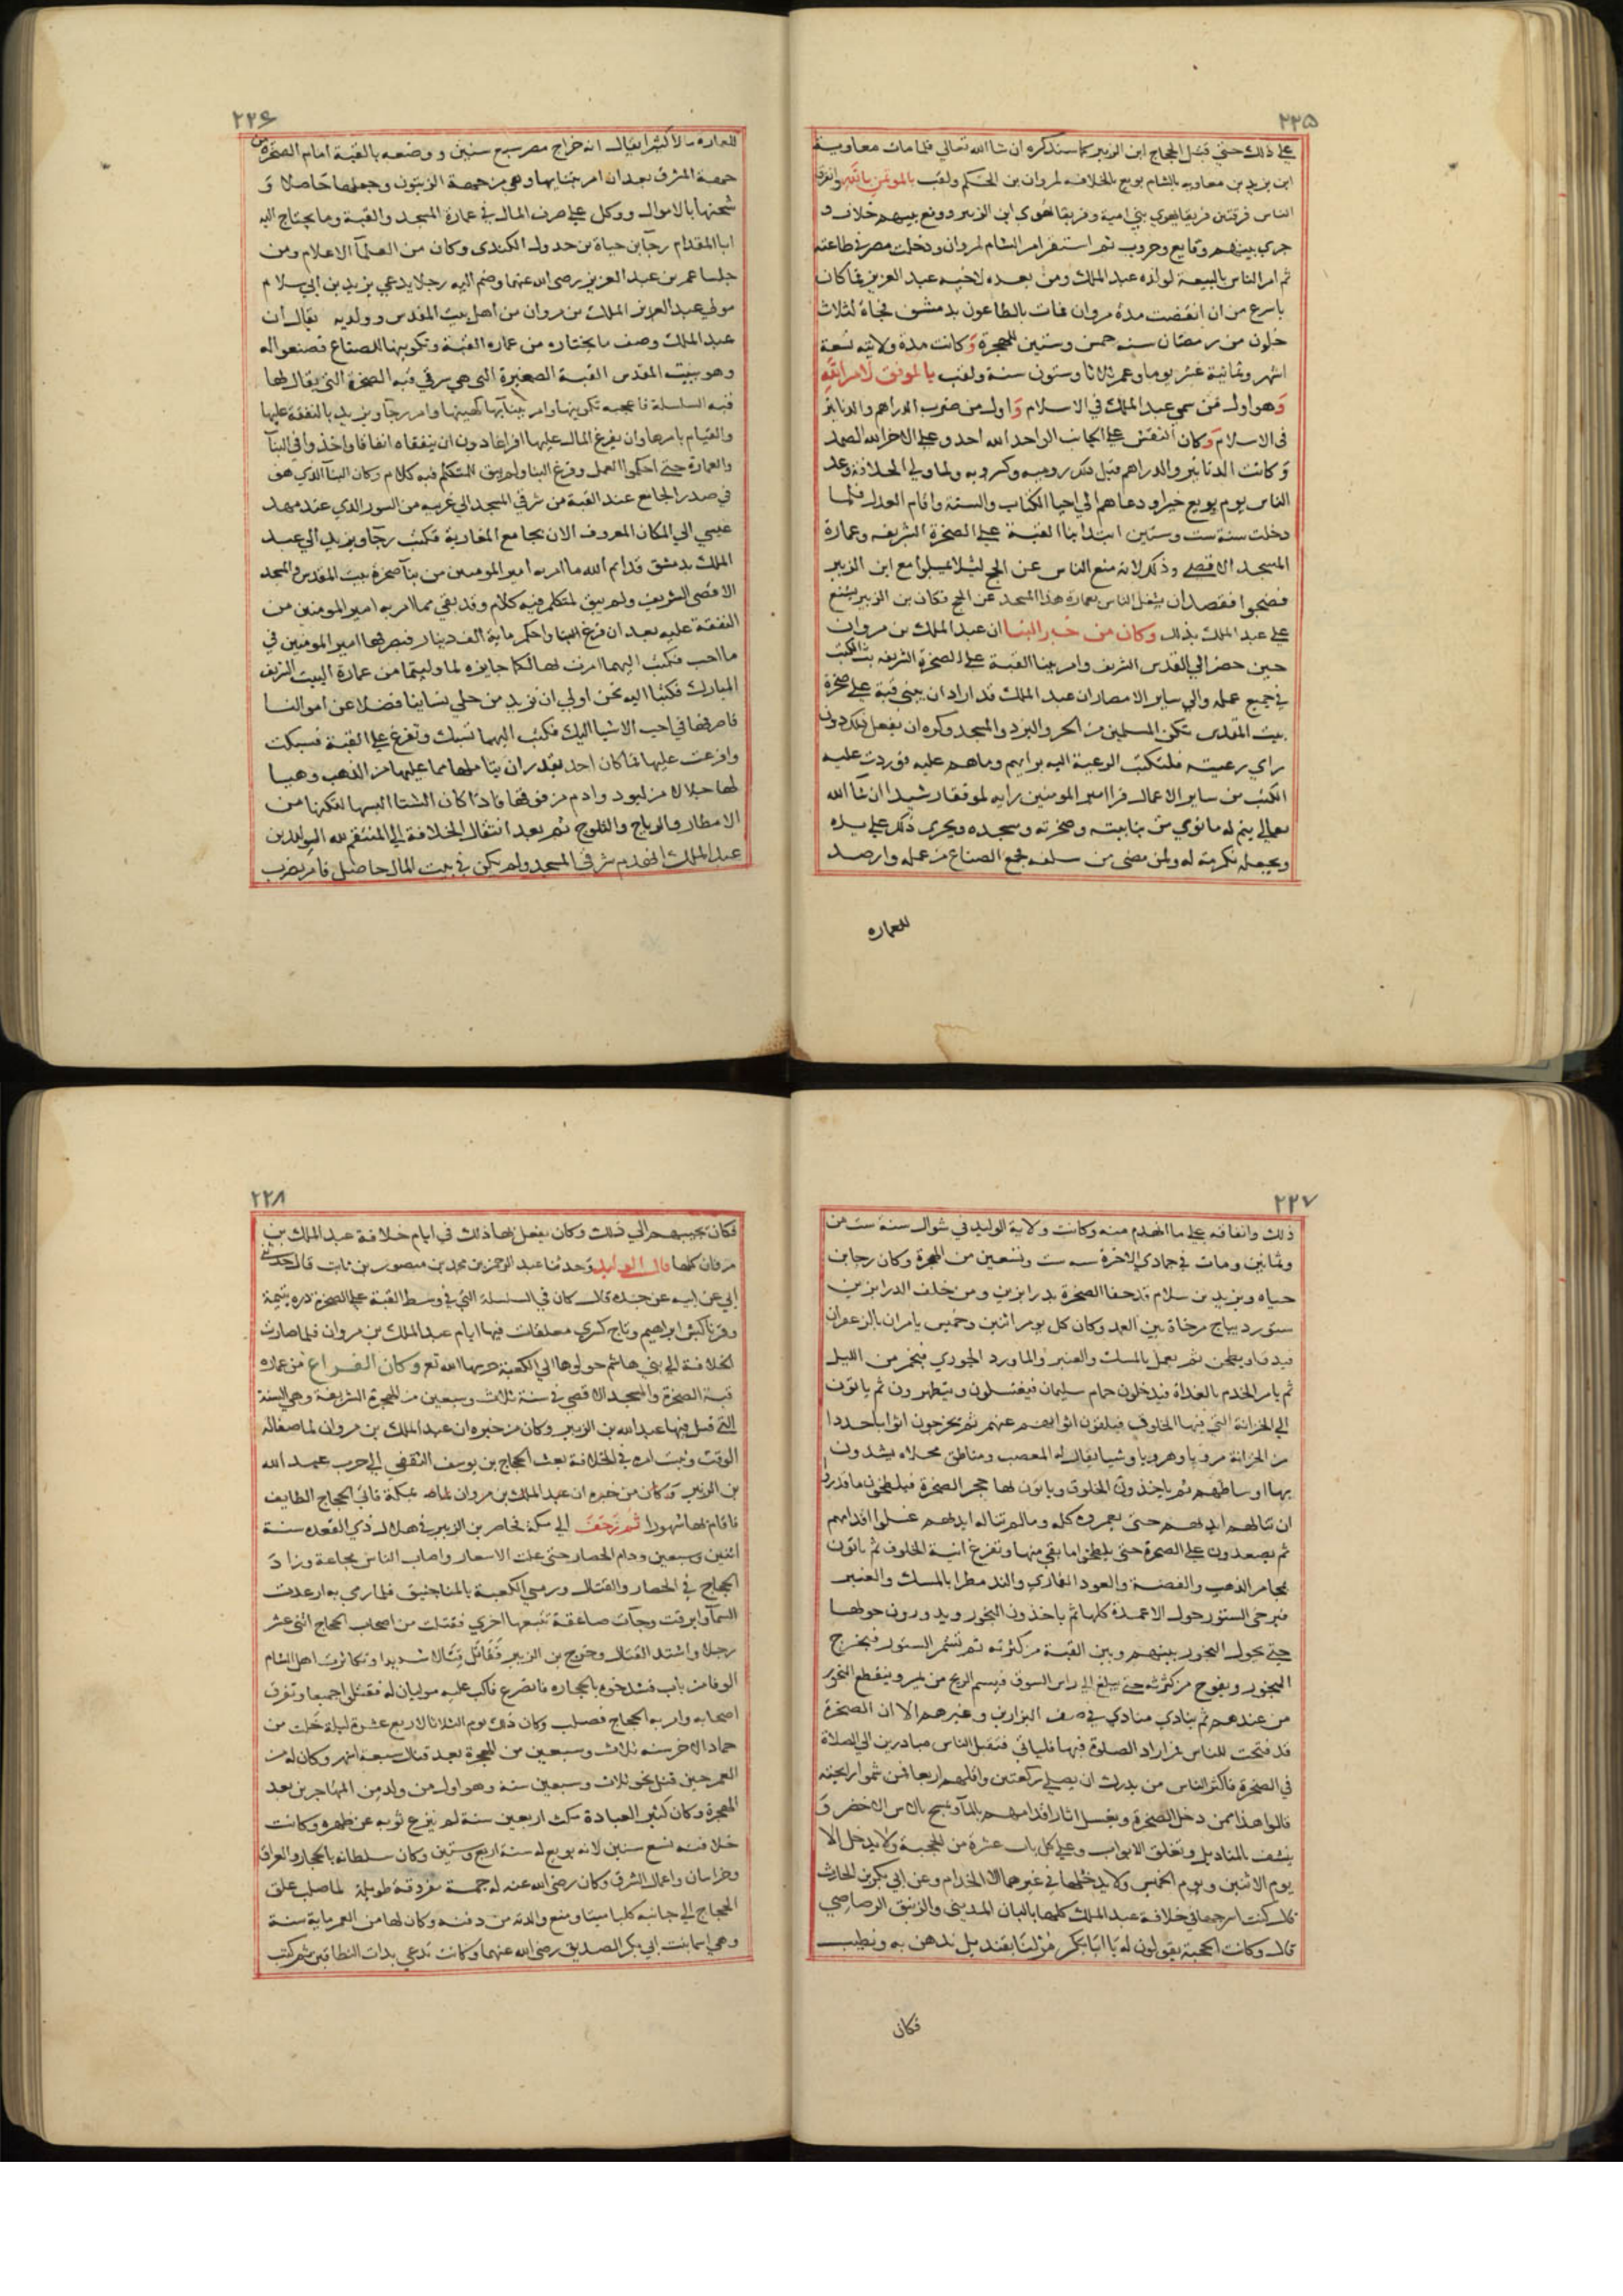 ٢٢٥
علي ذلك حتي قتل الحجاج ابن الزبير كما سنذكره ان شا الله تعالي فلما مات معاوية
ابن يزيد بن معاويه بالشام بويع بالخلافه لمروان بن الحكم ولقب بالموتمن بالله وافترق
الناس فرقتين فريقا يهوي بني امية وفريقا يهوي ابن الزبير ووقع بينهم خلاف و
جري بينهم وقايع وحروب ثم استقر امر الشام لمروان ودخلت مصر في طاعته
ثم امر الناس بالبيعة لولده عبد الملك ومن بعده لاخيه عبد العزيز فما كان
باسرع من ان انقضت مدة مروان فمات بالطاعون بدمشق فجاة لثلاث
خلون من رمضان سنه خمس وستين للهجرة وكانت مدة ولايته تسعة
اشهر وثمانية عشر يوما وعمره ثلاثا وستون سنة ولقب بالموفق لامر الله
وهو اول من سمي عبد الملك في الاسلام واول من ضرب الدراهم والدنانير
في الاسلام وكان النقش علي الجانب الواحد الله احد وعلي الاخر الله الصمد
وكانت الدنانير والدراهم قبل ذلك روميه وكسرويه ولما ولي الخلافة وعد
الناس يوم بويع خيرا ودعاهم الي احيا الكتاب والسنة واقام العدل فلما
دخلت سنة ست وستين ابتدا بنا القبة علي الصخرة الشريفه وعمارة
المسجد الاقصي وذلك لانه منع الناس عن الحج ليلا يميلوا مع ابن الزبير
فضجوا فقصد ان يشغل الناس بعمارة هذا المسجد عن الحج فكان بن الزبير يشنع
علي عبد الملك بذلك وكان من خبر البنا ان عبد الملك بن مروان
حين حضر الي القدس الشريف وامر ببنا القبة علي الصخرة الشريفه بث الكتب
في جميع عمله والي ساير الامصار ان عبد الملك قد اراد ان يبني قبة علي صخرة
بيت المقدس تكن المسلمين من الحر والبرد والمسجد وكره ان يفعل ذلك دون
راي رعيته فلتكتب الرعية اليه برايهم وماهم عليه فوردت عليه
الكتب من ساير الاعمال نرا امير المومنين رايه لموفقا رشيدا ان شا الله
تعالي يتم له ما نوي من بنا بيته وصخرته ومسجده ويجري ذلك علي يده
ويجعله تكرمة له ولمن مضي من سلفه فجمع الصناع من عمله وارصد
للعماره
٢٢٦
للعماره مالا كثيرا يقال انه خراج مصر سبع سنين ووضعه بالقبة امام الصخرة من
جهة الشرق بعد ان امر ببنايها وهي من جهة الزيتون وجعلها حاصلا و
شحنها بالاموال ووكل علي صرف المال في عمارة المسجد والقبة وما يحتاج اليه
ابا المقدام رجا بن حياة بن جدول الكندي وكان من العلما الاعلام ومن
جلسا عمر بن عبد العزيز رضي الله عنهما وضم اليه رجلا يدعي يزيد بن ابي سلام
مولي عبد الملك بن مروان من اهل بيت المقدس وولديه يقال ان
عبد الملك وصف ما يختاره من عماره القبة وتكوينها للصناع فصنعوا له
وهو ببيت المقدس القبة الصغيرة التي هي شرقي قبه الصخرة التي يقال لها
قبه السلسلة فاعجبه تكوينها وامر ببنايها كهيتها وامر رجا ويزيد بالنفقة عليها
والقيام بامرها وان يفرغ المال عليها افراغا دون ان ينفقاه انفاقا واخذوا في البنا
والعمارة حتي احكموا العمل وفرغ البنا ولم يبق لمتكلم فيه كلام وكان البنا الذي هو
في صدر الجامع عند القبة من شرقي المسجد الي غربيه من السور الذي عند مهد
عيسي الي المكان المعروف الان بجامع المغاربة فكتب رجا ويزيد الي عبد
الملك بدمشق قد اتم الله ما امر به امير المومنين من بنا صخرة بيت المقدس والمسجد
الاقصي الشريف ولم يبق لمتكلم فيه كلام وقد بقي مما امر به امير المومنين من
النفقة عليه بعد ان فرغ البنا واحكم ماية الف دينار فيصرفها امير المومنين في
ما احب فكتب اليهما امرت لكما جايزه لما وليتما من عمارة البيت الشريف
المبارك فكتبا اليه نحن اولي ان نزيد من حلي نساينا فضلا عن اموالنا
فاصرفها في احب الاشيا اليك فكتب اليهما تسبك وتفرغ علي القبة فسبكت
وافرغت عليها فما كان احد يقدر ان يتاملها مما عليها من الذهب وهيا
لها جلالا من لبود وادم من فوقها فاذا كان الشتا البسها لتكنها من
الامطار والرياح والثلوج ثم بعد انتقال الخلافة الي المنتقم لله الوليد بن
عبد الملك انهدم شرقي المسجد ولم يكن في بيت المال حاصل فامر بضرب
٢٢٧
ذلك وانفاقه علي ما انهدم منه وكانت ولاية الوليد في شوال سنة ست من
وثمانين ومات في جمادي الاخرة سنه ست وتسعين من الهجرة وكان رجا بن
حياه ويزيد بن سلام قد حفا الصخرة بدرابزين ومن خلف الدرابزين
ستور ديباج مرخاة بين العمد وكان كل يوم اثنين وخميس يامران بالزعفران
فيدق او يطحن ثم يعمل بالمسك والعنبر والماورد الجوري فيخمر من الليل
ثم يامر الخدم بالغداة فيدخلون حمام سليمان فيغتسلون ويتطهرون ثم ياتون
الي الخزانة التي فيها الخلوف فيلقون اثوابهم عنهم ثم يخرجون اثوابا جددا
من الخزانة مرويا وهرويا وشيا يقال له المعصب ومناطق محلاه يشدون
بها اوساطهم ثم ياخذون الخلوق وياتون لها حجر الصخرة فيلطخون ما قدروا
ان تناله ايديهم حتي يغمروه كله وما لم تناله ايديهم غسلوا اقدامهم
ثم يصعدون علي الصخرة حتي يلطخوا ما بقي منها وتفرغ انية الخلوف ثم ياتون
بمجامر الذهب والفضة والعود القماري والند مطرا بالمسك والعنبر
فيرخي الستور حول الاعمدة كلها ثم ياخذون البخور ويدورون حولها
حتي يحول البخور بينهم وبين القبة من كثرته ثم تشمر الستور فيخرج
البخور ويفوح من كثرته حتي يبلغ الي راس السوق فيشم الريح من يمر وينقطع البخور
من عندهم ثم ينادي منادي في صف البزازين وغيرهم الا ان الصخرة
قد فتحت للناس فمن اراد الصلوة فيها فلياتي فتقبل الناس مبادرين الي الصلاة
في الصخرة فاكثر الناس من يدرك ان يصلي ركعتين واقلهم اربعا فمن شموا رايحته
قالوا هذا ممن دخل الصخرة ويغسل اثار اقدامهم بالما ويمسح بالاس الاخضر و
ينشف بالمناديل وتغلق الابواب وعلي كل باب عشرة من الحجبة ولا يدخل الا
يوم الاثنين ويوم الخميس ولا يدخلها في غيرهما الا الخدام وعن ابي بكر بن الحارث
قال كنت اسرجها في خلافة عبد الملك كلها بالبان المديني والزنبق الرصاصي
قال وكانت الحجبة يقولون له يا ابا بكر مر لنا بقنديل ندهن به ونطيب
فكان
٢٢٨
فكان يجيبهم الي ذلك وكان يفعل بها ذلك في ايام خلافة عبد الملك بن
مروان كلها قال الوليد وحدثنا عبد الرحمن بن محمد بن منصور بن ثابت قال حدثني
ابي عن ابيه عن جده قال كان في السلسلة التي في وسط القبة علي الصخرة دره يتيمة
وقرنا كبش ابراهيم وتاج كسري معلقات فيها ايام عبد الملك بن مروان فلما صارت
الخلافة الي بني هاشم حولوها الي الكعبة حرسها الله تع وكان الفراغ من عماره
قبة الصخرة والمسجد الاقصي في سنة ثلاث وسبعين من الهجرة الشريفة وهي السنة
التي قتل فيها عبد الله بن الزبير وكان من خبره ان عبد الملك بن مروان لما صفا له
الوقت وثبت امره في الخلافة بعث الحجاج بن يوسف الثقفي الي حرب عبد الله
بن الزبير وكان من خبره ان عبد الملك بن مروان بمكة فاتي الحجاج الطايف
فاقام بها شهورا ثم زحف الي مكة فحاصر بن الزبير في هلال ذي القعده سنة
اثنين وسبعين ودام الحصار حتي غلت الاسعار واصاب الناس مجاعة وزاد
الحجاج في الحصار والقتال ورمي الكعبة بالمناجنيق فلما رمي به ارعدت
السما وابرقت وجات صاعقة تتبعها اخري فقتلت من اصحاب الحجاج اثني عشر
رجلا واشتد القتال وخرج بن الزبير فقاتل قتالا شديدا وتكاثرت اهل الشام
الوفا من باب فشدخوه بالحجاره فانصرع فاكب عليه موليان له فقتلوا جميعا وتفرق
اصحابه وامر به الحجاج فصلب وكان ذلك يوم الثلاثا لاربع عشرة ليلة خلت من
جماد الاخر سنه ثلاث وسبعين من الهجرة بعد قتال سبعة اشهر وكان له من
العمر حين قتل نحو ثلاث وسبعين سنة وهو اول من ولد من المهاجرين بعد
الهجرة وكان كثير العبادة مكث اربعين سنة لم ينزع ثوبه عن ظهره وكانت
خلافته تسع سنين لانه بويع له سنة اربع وستين وكان سلطانه بالحجاز والعراق
وخراسان واعمال الشرق وكان رضي الله عنه له جمة مفروقة طويلة لما صلب علق
الحجاج الي جانبه كلبا ميتا ومنع والدته من دفنه وكان لها من العمر ماية سنة
وهي اسما بنت ابي بكر الصديق رضي الله عنهما وكانت تدعي بذات النطاقين ثم كتب